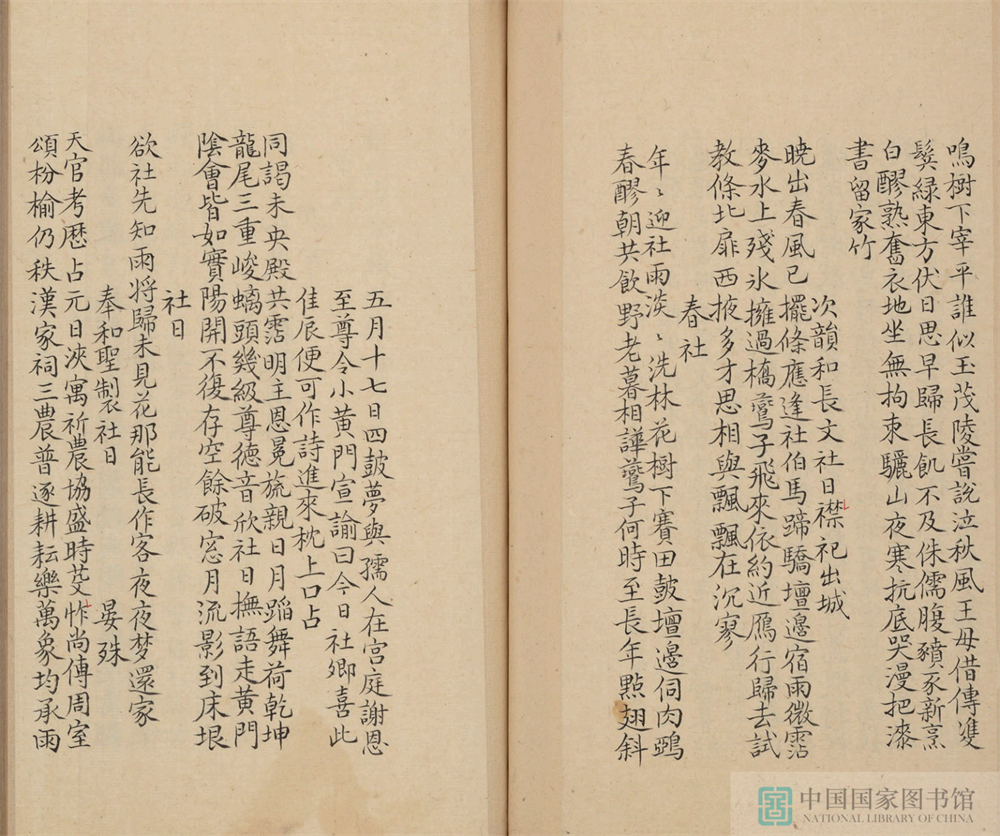 鳴樹下宰平誰似玉茂陵嘗說泣秋風王母借傳雙
鬢緑東方伏日思早歸長飢不及侏儒腹豶豕新烹
白醪熟奮衣地坐無拘束驪山夜寒抗底哭漫把漆
書留冢竹
次韻和長文社日禖祀出城
曉出春風已擺條應逢社伯馬蹄驕壇邊宿雨微霑
麥水上殘氷擁過橋鷰子飛來依約近鴈行歸去試
教條北扉西掖多才思相與飄飄在沉寥
春社
年〻迎社雨淡〻洗林花樹下賽田鼓壇邊伺肉鵶
春醪朝共飲野老暮相譁鷰子何時至長年點翅斜
五月十七日四鼓夢與孺人在宫庭謝恩
至尊令小黄門宣諭曰今日社卿喜此
佳辰便可作詩進來枕上口占
同謁未央殿共霑明主恩冕旒親日月蹈舞荷乾坤
龍尾三重峻螭頭幾級尊德音欣社日撫語走黄門
陰會皆如實陽開不復存空餘破窓月流影到床垠
社日
欲社先知雨將歸未見花那能長作客夜夜梦還家
奉和聖製社日 晏殊
天官考厯占元日浹寓祈農協盛時芟柞尚傳周室
頌枌榆仍秩漢家祠三農普逐耕耘樂萬象均承雨
中国国家图书馆
NATIONAL LIBRARY OF CHINA